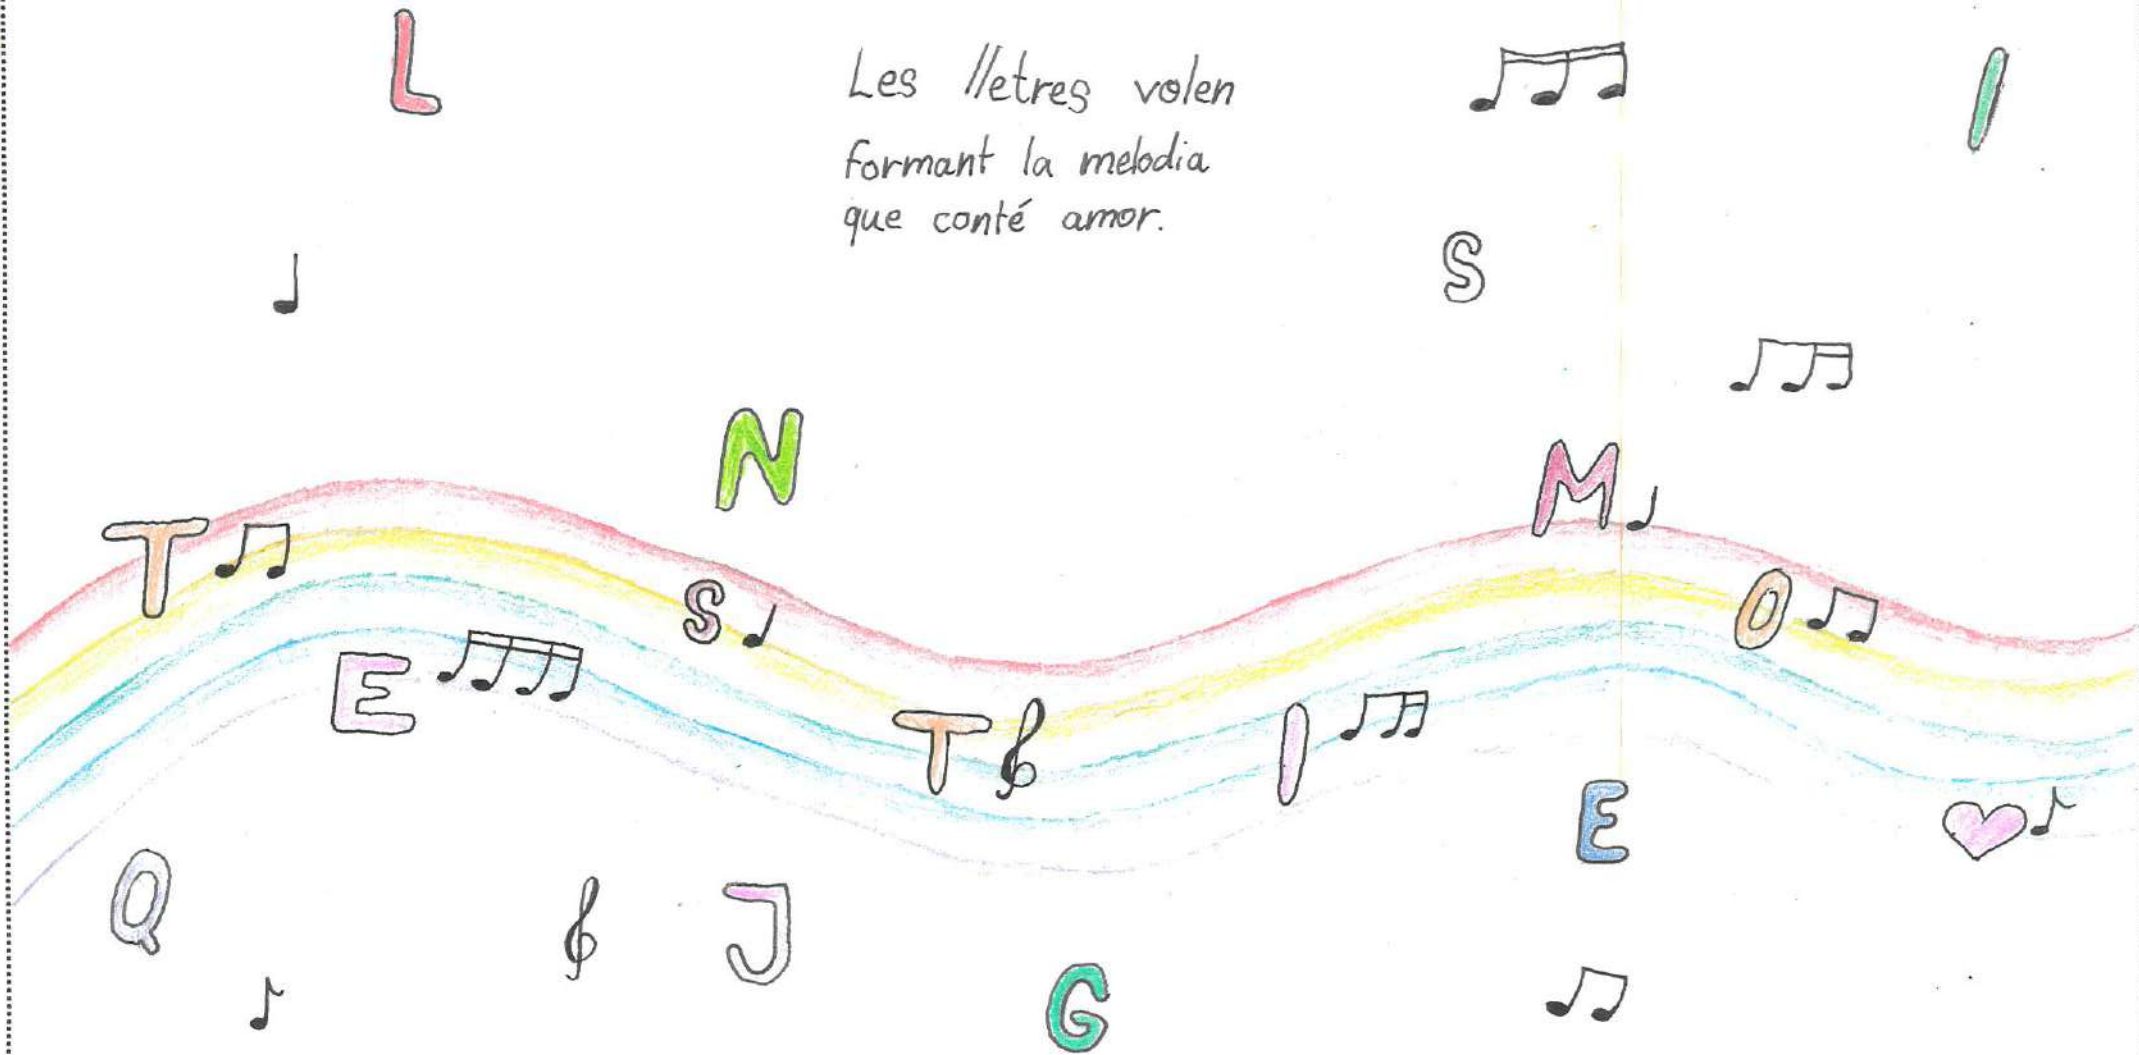 L
Les lletres volen
formant la melodia
que conté amor.
I
S
N
M
T
S
O
E
T
I
E
Q
J
G